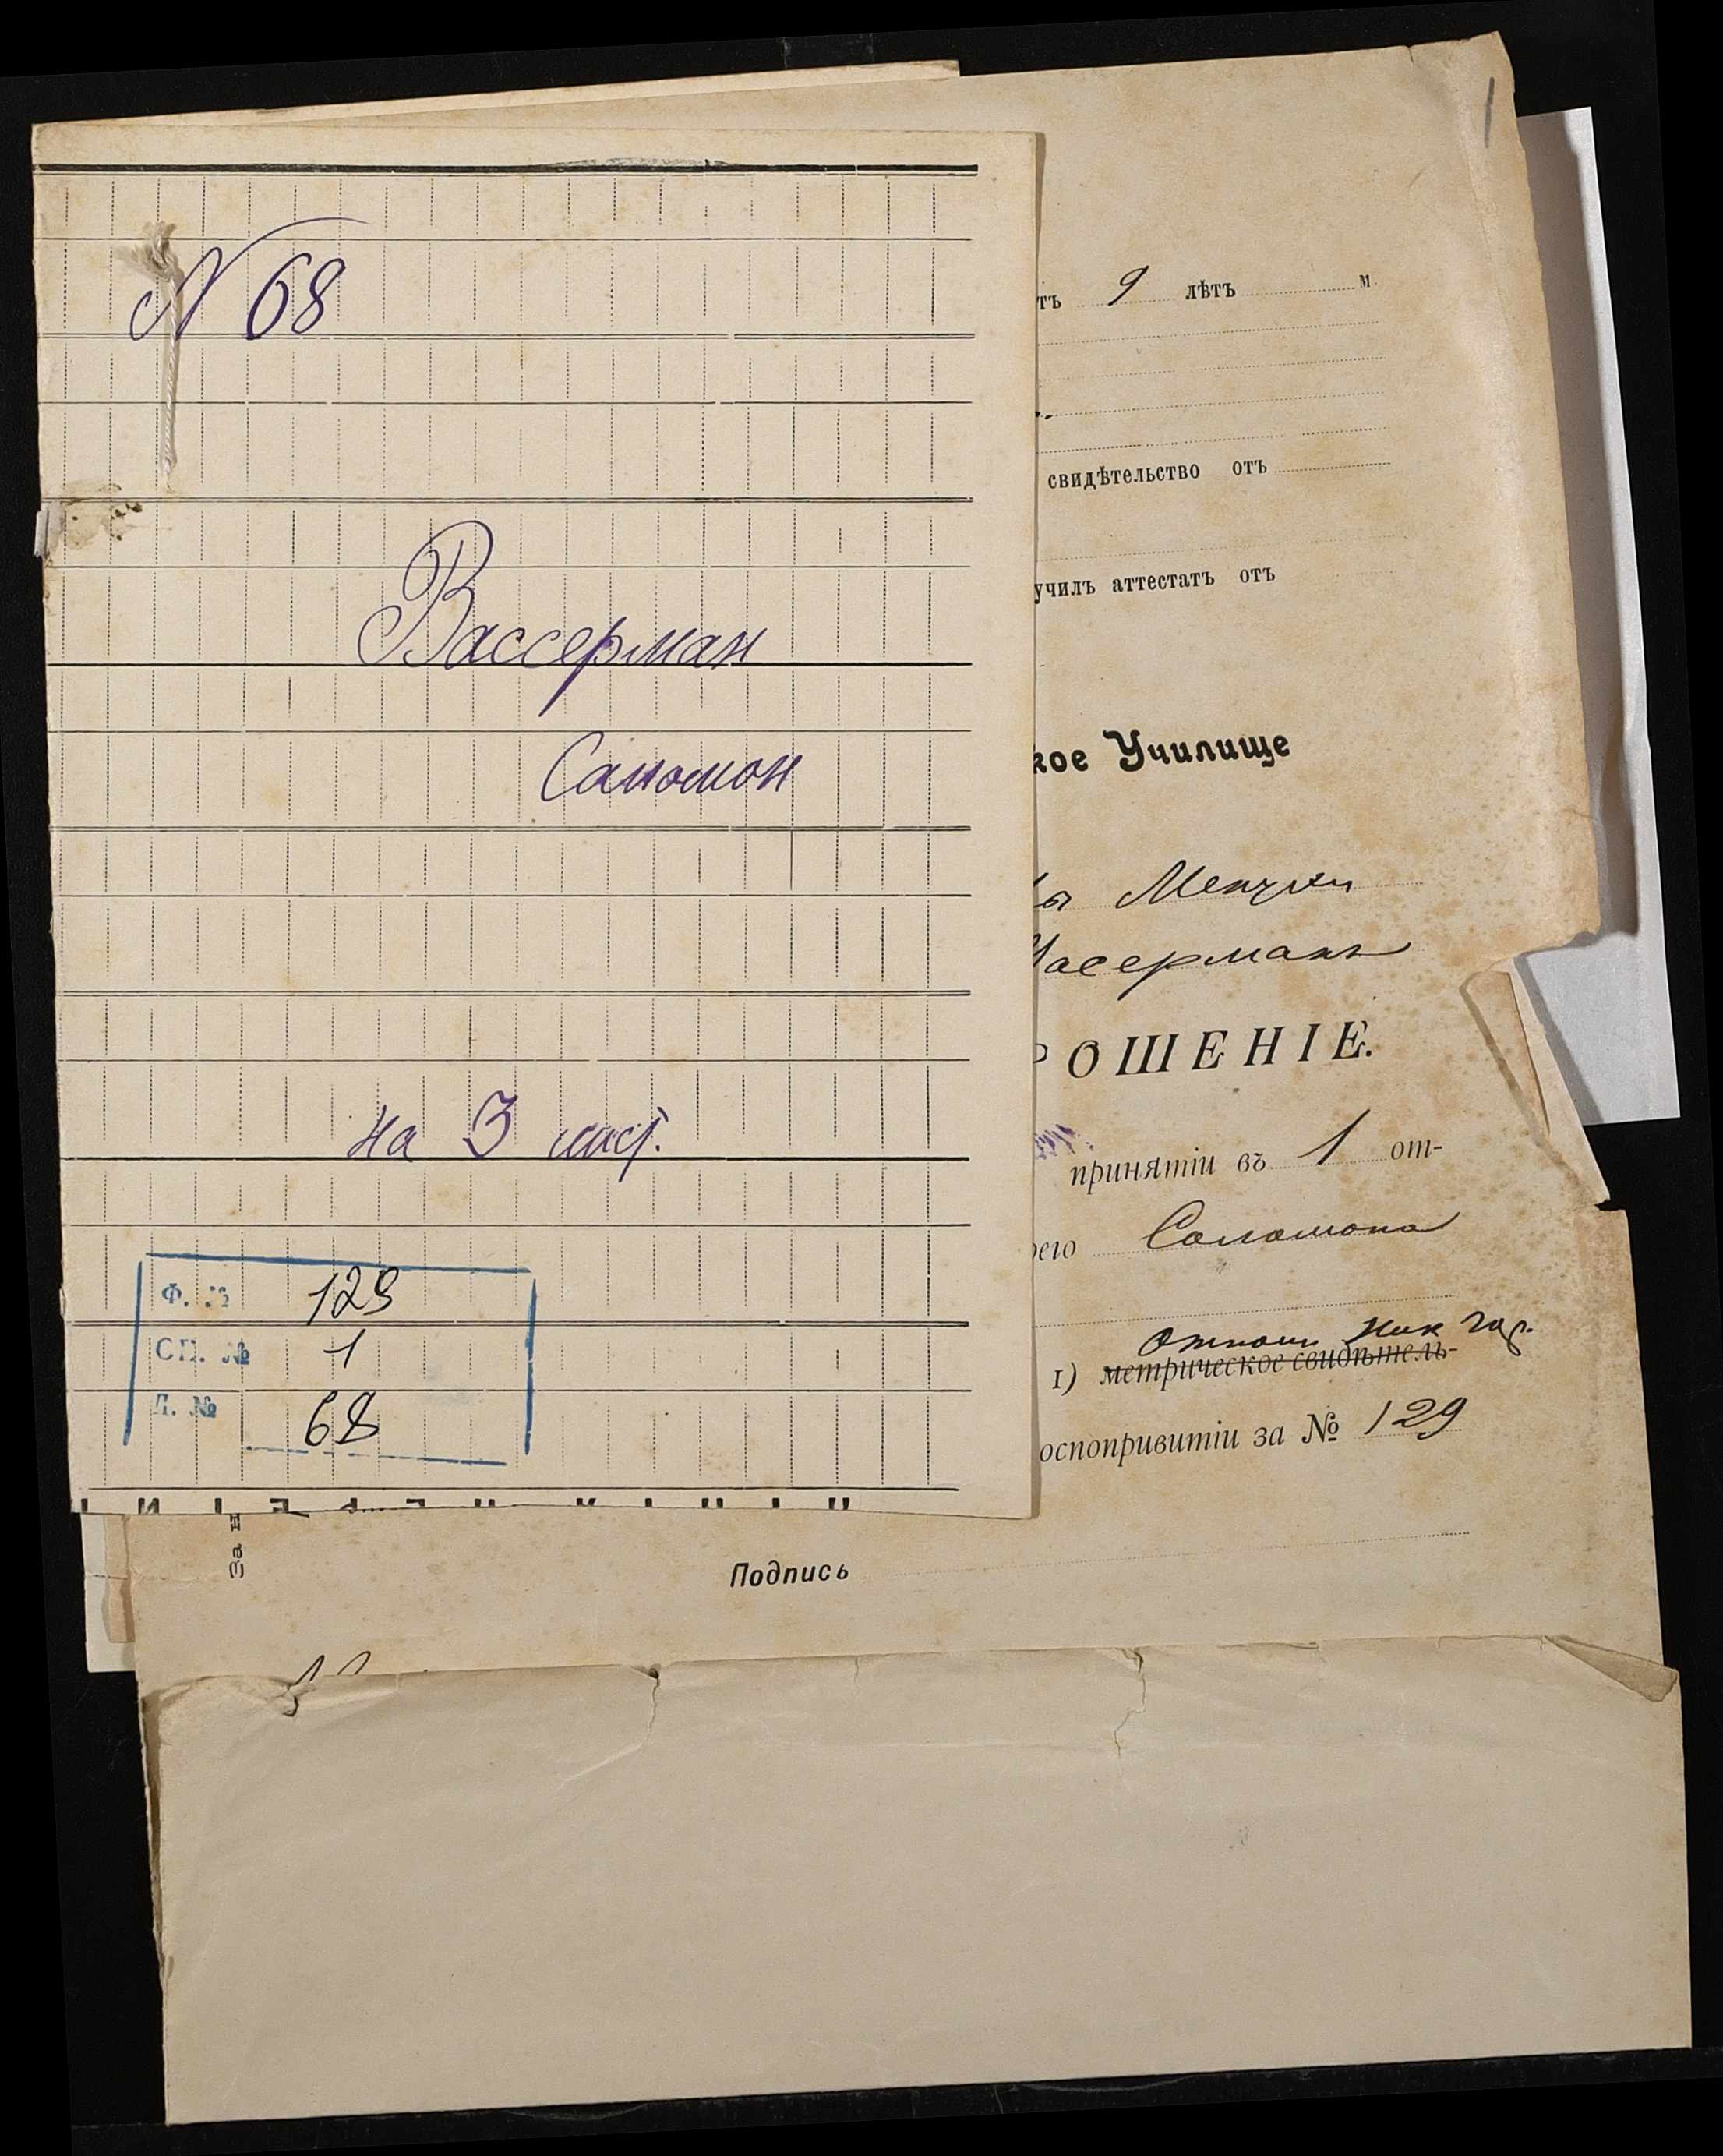 N 68
Вассерман
Саломон
на 3 лист.
Ф. № 129
СП. № 1
Д. № 68
1
тъ 9 лѣтъ м.
свидѣтельство отъ
училъ аттестатъ отъ
кое Училище
асерманъ
РОШЕНІЕ.
принятіи въ 1 от-
его Соломона
Отнош. Ник
1) метрическое свидѣтель-
оспопривитіи за № 129
За н
Подпись